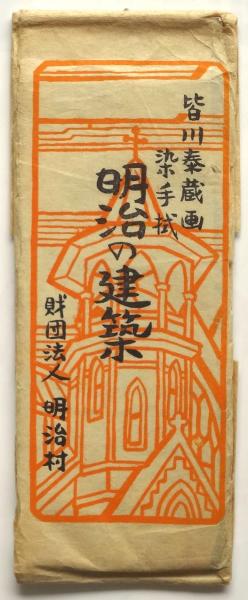 皆川泰蔵画
染手拭
明治の建築
財団法人 明治村